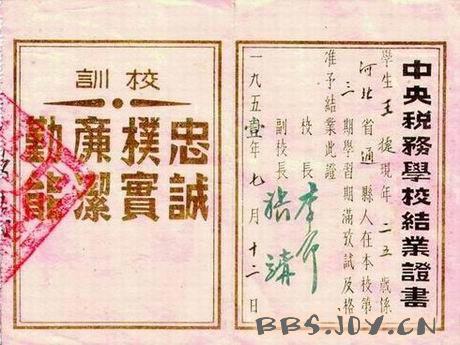 中央稅務學校結業證書
學生王 現年二五歲係
河北省通縣人在本校第
三期學習期滿攷試及格
准予結業此證
校長 李予昂
副校長 張靖
一九五壹年七月十二日
校訓
忠誠
樸實
廉潔
勤能
BBS.JOY.CN